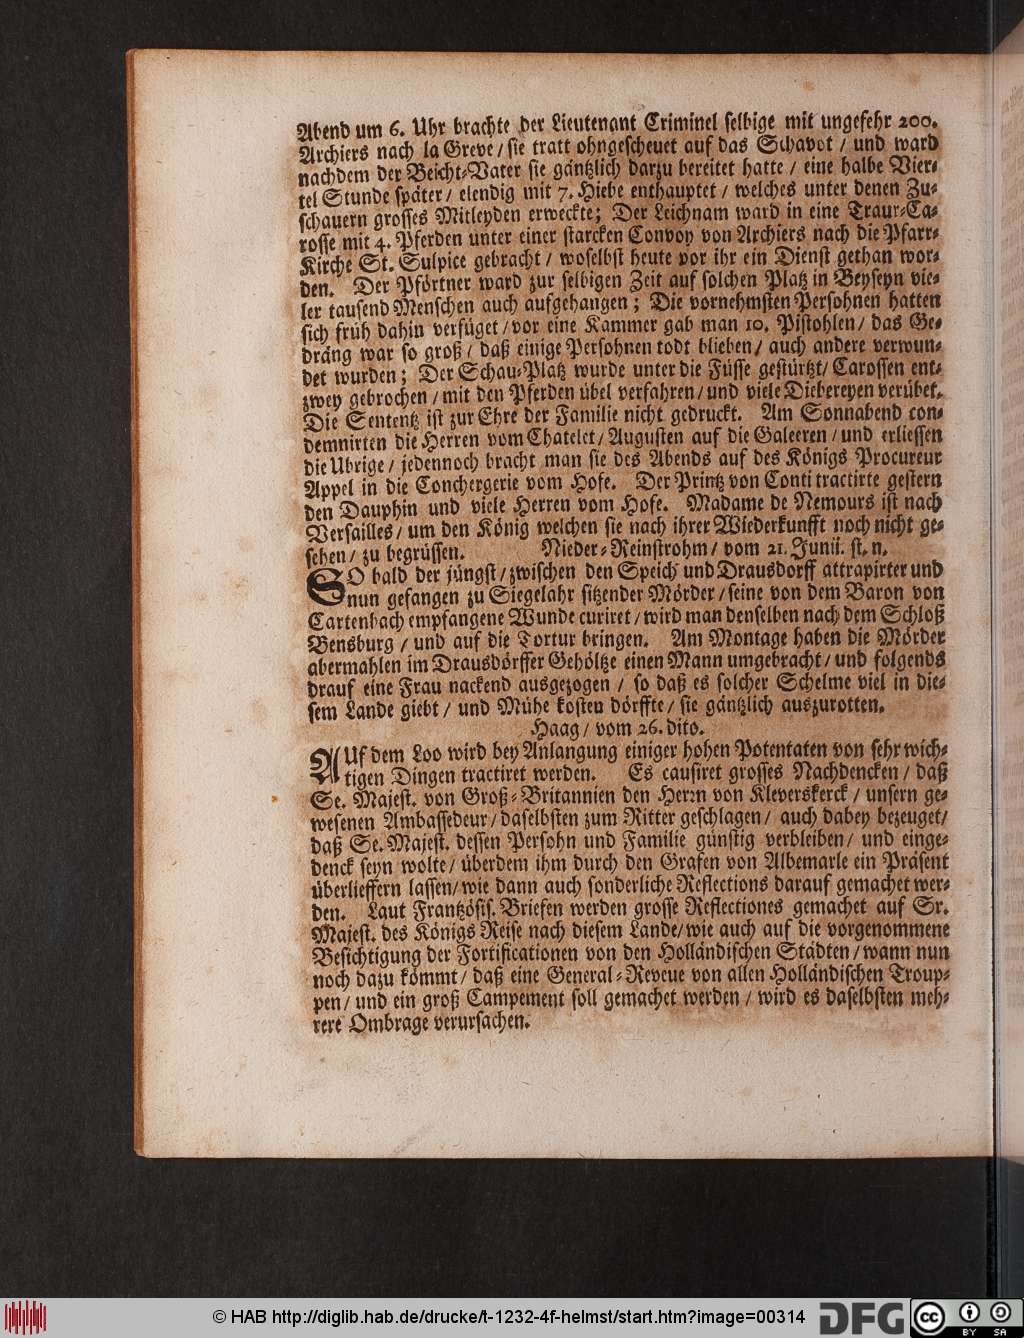 Abend um 6. Uhr brachte der Lieutenant Criminel selbige mit ungefehr 200.
Archiers nach la Greve / sie tratt ohngescheuet auf das Schavot / und ward
nachdem der Beicht-Vater sie gäntzlich darzu bereitet hatte / eine halbe Vier-
tel Stunde später / elendig mit 7. Hiebe enthauptet / welches unter denen Zu-
schauern grosses Mitleyden erweckte; Der Leichnam ward in eine Traur-Ca-
rosse mit 4. Pferden unter einer starcken Convoy von Archiers nach die Pfarr-
Kirche St. Sulpice gebracht / woselbst heute vor ihr ein Dienst gethan wor-
den. Der Pförtner ward zur selbigen Zeit auf solchen Platz in Beyseyn vie-
ler tausend Menschen auch aufgehangen; Die vornehmsten Persohnen hatten
sich früh dahin verfüget / vor eine Kammer gab man 10. Pistohlen / das Ge-
dräng war so groß / daß einige Persohnen todt blieben / auch andere verwun-
det wurden; Der Schau-Platz wurde unter die Füsse gestürtzt / Carossen ent-
zwey gebrochen / mit den Pferden übel verfahren / und viele Diebereyen verübet.
Die Sententz ist zur Ehre der Familie nicht gedruckt. Am Sonnabend con-
demnirten die Herren vom Chatelet / Augusten auf die Galeeren / und erliessen
die Ubrige / jedennoch bracht man sie des Abends auf des Königs Procureur
Appel in die Conchergerie vom Hofe. Der Printz von Conti tractirte gestern
den Dauphin und viele Herren vom Hofe. Madame de Nemours ist nach
Versailles / um den König welchen sie nach ihrer Wiederkunfft noch nicht ge-
sehen / zu begrüssen. Nieder-Reinstrohm / vom 21. Junii. st. n.
SO bald der jüngst / zwischen den Speich und Drausdorff attrapirter und
nun gefangen zu Siegelahr sitzender Mörder / seine von dem Baron von
Cartenbach empfangene Wunde curiret / wird man denselben nach dem Schloß
Bensburg / und auf die Tortur bringen. Am Montage haben die Mörder
abermahlen im Drausdörffer Gehöltze einen Mann umgebracht / und folgends
drauf eine Frau nackend ausgezogen / so daß es solcher Schelme viel in die-
sem Lande giebt / und Mühe kosten dörffte / sie gäntzlich auszurotten.
Haag / vom 26. dito.
AUf dem Loo wird bey Anlangung einiger hohen Potentaten von sehr wich-
tigen Dingen tractiret werden. Es causiret grosses Nachdencken / daß
Se. Majest. von Groß-Britannien den Herrn von Kleverskerck / unsern ge-
wesenen Ambassedeur / daselbsten zum Ritter geschlagen / auch dabey bezeuget /
daß Se. Majest. dessen Persohn und Familie günstig verbleiben / und einge-
denck seyn wolte / überdem ihm durch den Grafen von Albemarle ein Präsent
überlieffern lassen / wie dann auch sonderliche Reflections darauf gemachet wer-
den. Laut Frantzösis. Briefen werden grosse Reflectiones gemachet auf Sr.
Majest. des Königs Reise nach diesem Lande / wie auch auf die vorgenommene
Besichtigung der Fortificationen von den Holländischen Städten / wann nun
noch dazu kömmt / daß eine General-Reveue von allen Holländischen Troup-
pen / und ein groß Campement soll gemachet werden / wird es daselbsten meh-
rere Ombrage verursachen.
© HAB http://diglib.hab.de/drucke/t-1232-4f-helmst/start.htm?image=00314
DFG
cc BY SA